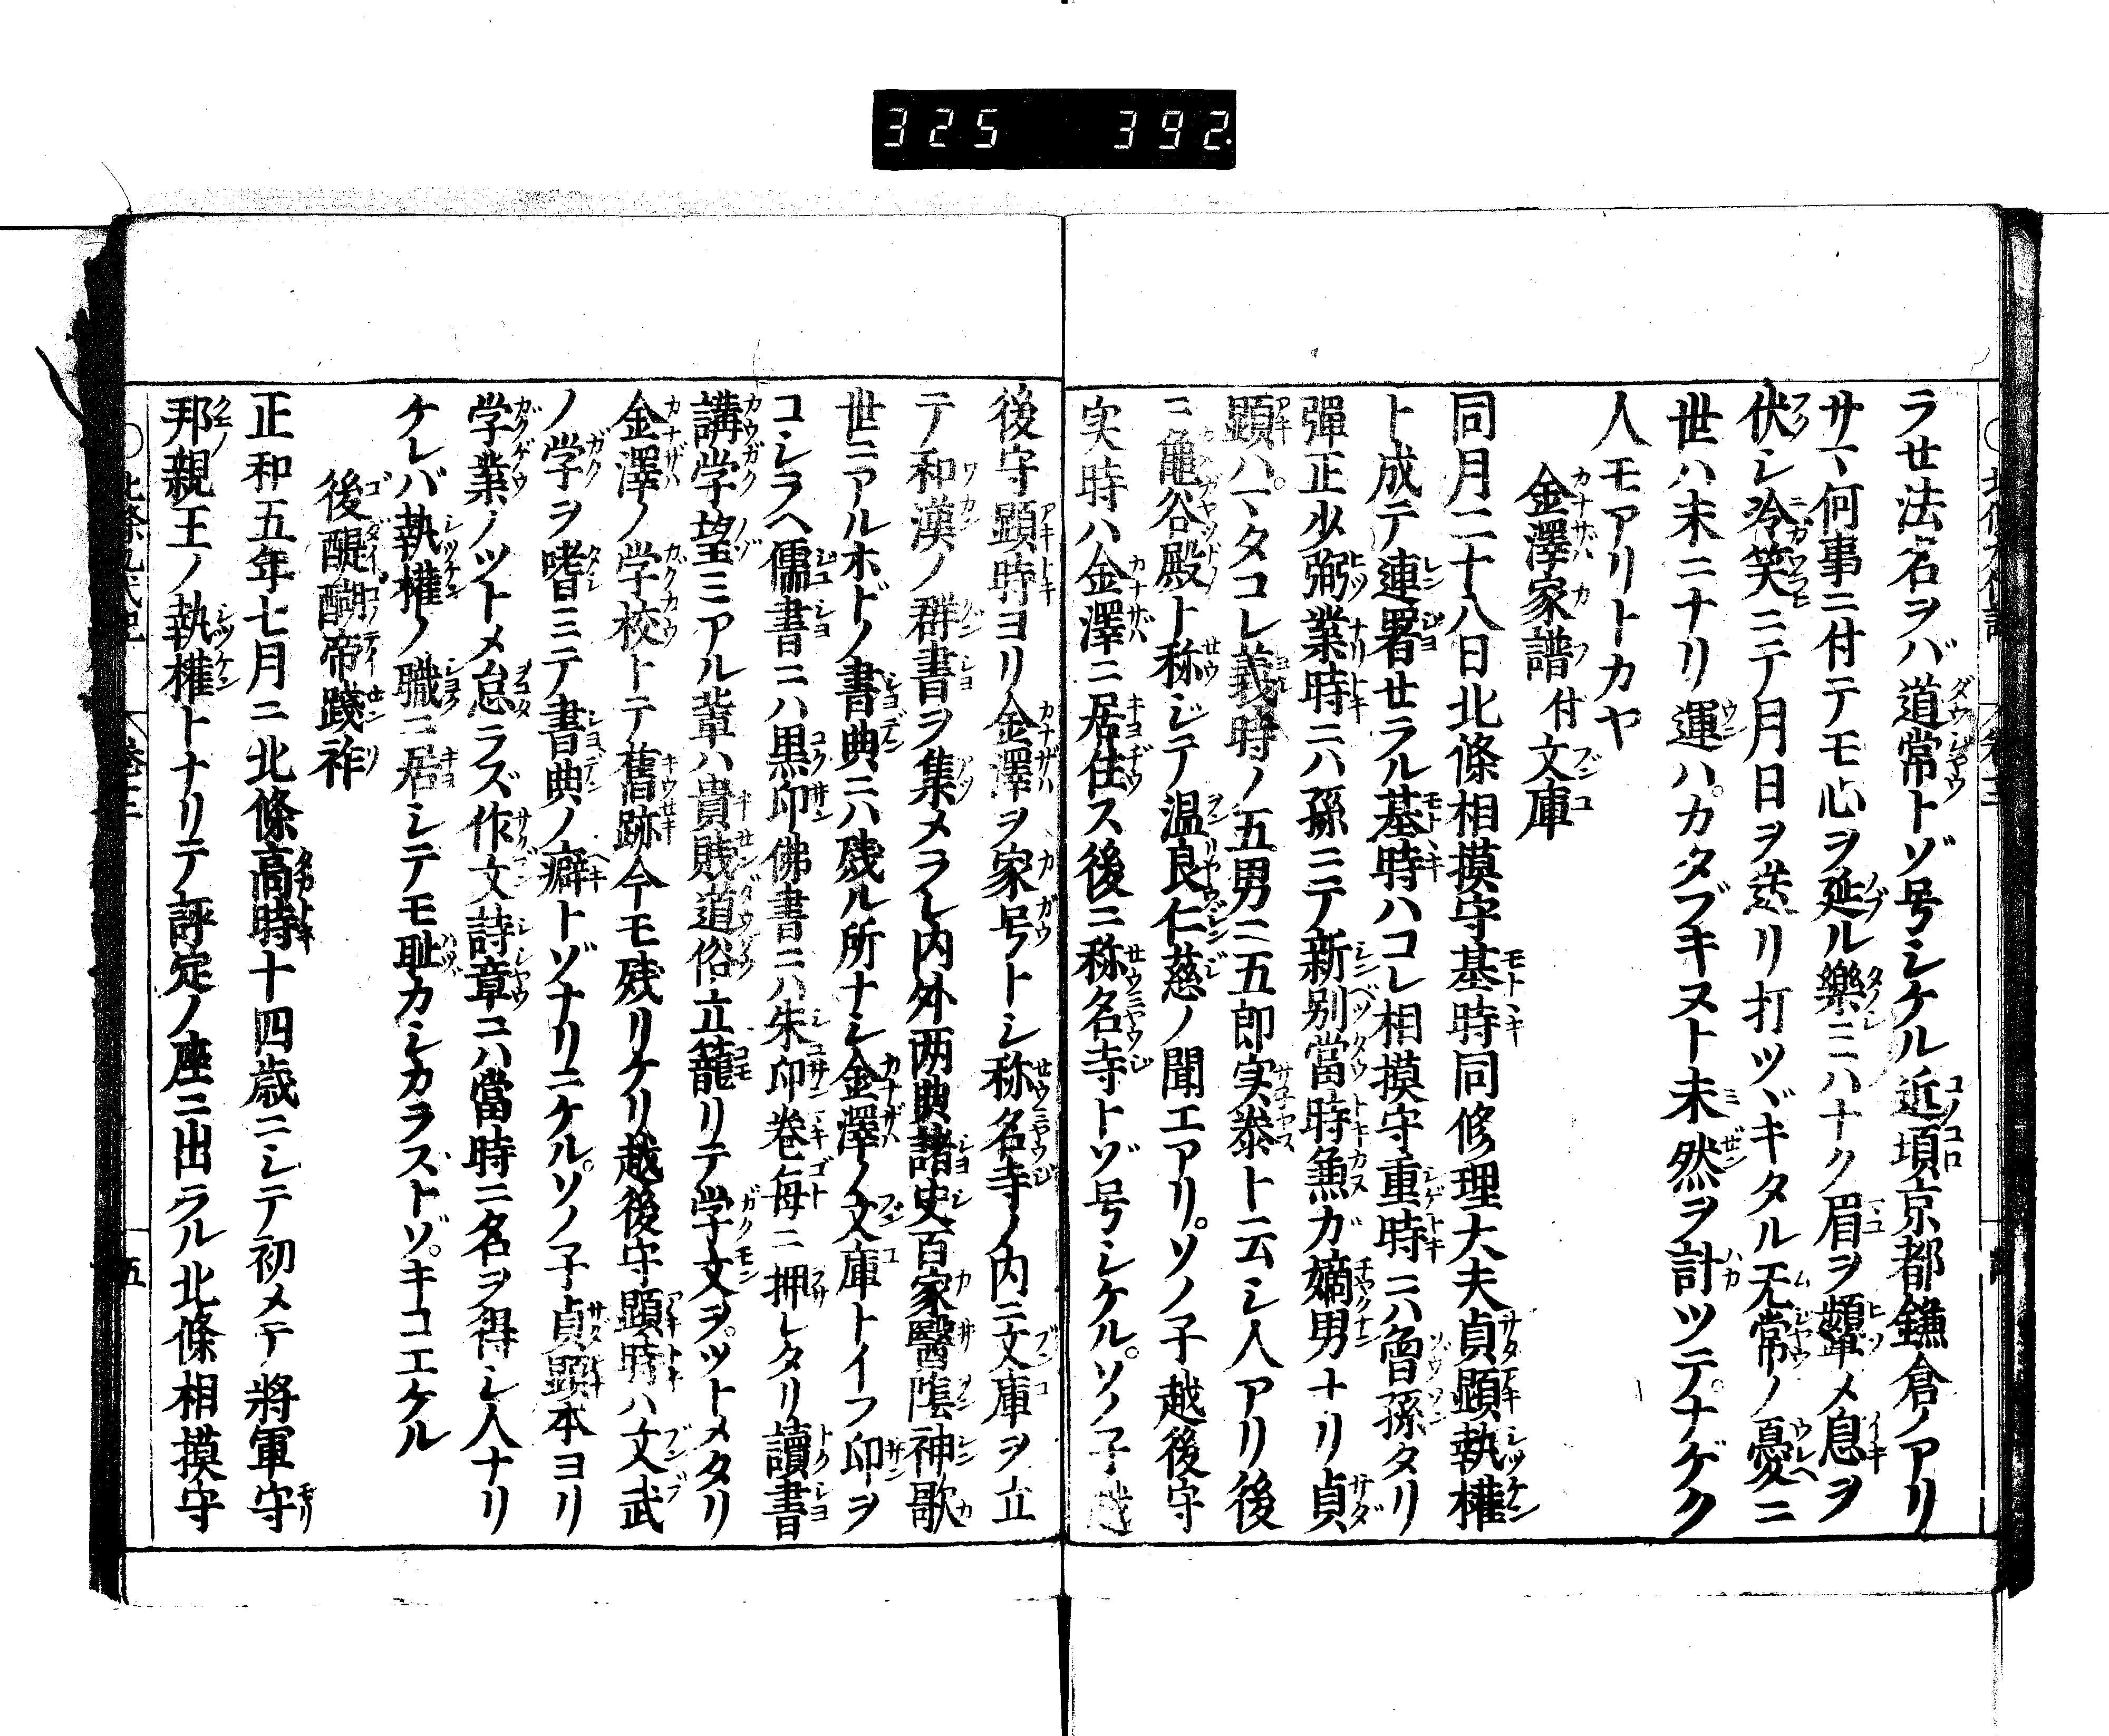 325 392
ラせ法名ヲバ道常トゾ号シケル近頃京都鎌倉ノアリ
サヽ何事ニ付テモ心ヲ延ル樂ミハナク眉ヲ顰メ息ヲ
伏シ冷笑ニテ月日ヲ送リ打ツヾキタル无常ノ憂ニ
世ハ末ニナリ運ハカタブキヌト未然ヲ計ツテナゲク
人モアリトカヤ
金澤家譜付文庫
同月二十八日北條相摸守基時同修理大夫貞顕執權
ト成テ連署せラル基時ハコレ相摸守重時ニハ曽孫タリ
彈正少弼業時ニハ孫ニテ新別當時魚ガ嫡男ナリ貞
顕ハマタコレ義時ノ五男ニ五郎実泰ト云シ人アリ後
ニ龜谷殿ト称ジテ温良仁慈ノ聞エアリソノ子越後守
実時ハ金澤ニ居住ス後ニ称名寺トゾ号シケルソノ子越
後守顕時ヨリ金澤ヲ家号トシ称名寺ノ内ニ文庫ヲ立
テ和漢ノ群書ヲ集メラレ内外两典諸史百家醫陰神歌
世ニアルホドノ書典ニハ残ル所ナシ金澤ノ文庫トイフ印ヲ
コシラヘ儒書ニハ黒印佛書ニハ朱印卷毎ニ押レタリ讀書
講学望ミアル輩ハ貴賎道俗立籠リテ学文ヲツトメタリ
金澤ノ学校トテ舊跡今モ残リケリ越後守顕時ハ文武
ノ学ヲ嗜ミテ書典ノ癖トゾナリニケルソノ子貞顕本ヨリ
学業ノツトメ怠ラズ作文詩章ニハ當時ニ名ヲ得シ人ナリ
ケレバ執權ノ職ニ居シテモ耻カシカラストゾキコエケル
後醍醐帝踐祚
正和五年七月ニ北條高時十四歳ニシテ初メテ將軍守
邦親王ノ執權トナリテ評定ノ座ニ出ラル北條相摸守
五